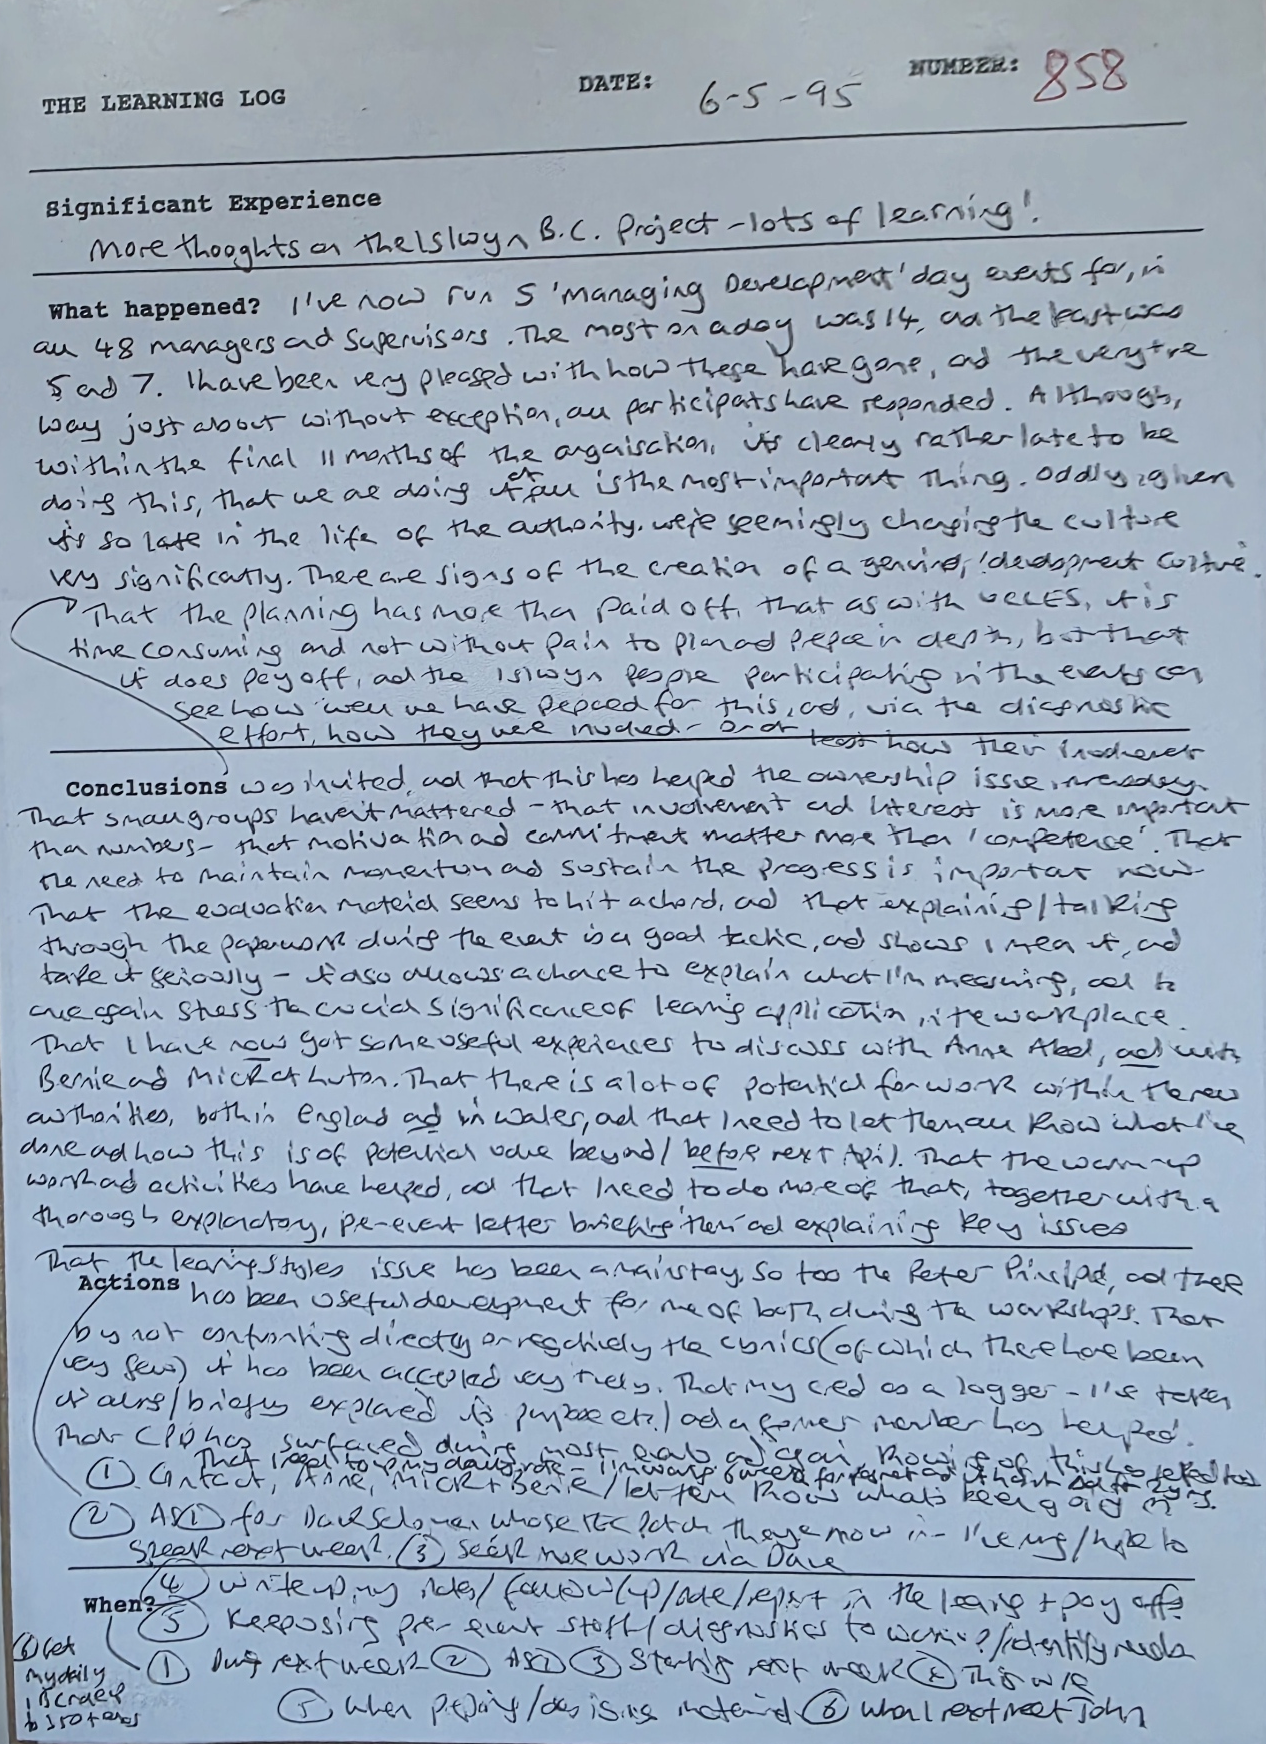 THE LEARNING LOG DATE: 6-5-95 NUMBER: 858
Significant Experience
More thoughts on the Islwyn B.C. Project - lots of learning!
What happened? I've now run 5 'Managing Development' day events for, in
all 48 managers and Supervisors. The most on a day was 14, and the least was
5 and 7. I have been very pleased with how these have gone, and the very +ve
way just about without exception, all participants have responded. Although,
within the final 11 months of the organisation, it's clearly rather late to be
doing this, that we are doing it at all is the most important thing. Oddly, given
it's so late in the life of the authority, we're seemingly changing the culture
very significantly. There are signs of the creation of a genuine, 'development culture'.
That the planning has more than paid off, that as with it is
time consuming and not without pain to plan and prepare in depth, but that
it does pay off, and the Islwyn people participating in the events can
see how well we have prepared for this, and, via the diagnostic
effort, how they were involved - or at least how their involvement
Conclusions was invited, and that this has helped the ownership issue
That small groups haven't mattered - that involvement and interest is more important
than numbers - that motivation and commitment matter more than 'competence'. That
the need to maintain momentum and sustain the progress is important now.
That the evaluation material seems to hit a chord, and that explaining/talking
through the paperwork during the event is a good tactic, and shows I mean it, and
take it seriously - it also allows a chance to explain what I'm measuring, and to
once again stress the crucial significance of learning application, in the workplace.
That I have now got some useful experiences to discuss with Anne Abel, and with
Bernie and Mick at Luton. That there is a lot of potential for work within the new
authorities, both in England and in Wales, and that I need to let them all know what I've
done and how this is of potential value beyond/before next April. That the warm-up
work and activities have helped, and that I need to do more of that, together with a
thorough explanatory, pre-event letter briefing them and explaining key issues
That the learning styles issue has been a mainstay, so too the Peter Principle, and there
Actions has been useful development for me of both, during the workshops. That
by not confronting directly or negatively the cynics (of which there have been
very few) it has been accepted very nicely. That my cred as a logger - I've taken
it along/briefly explained its purpose etc./and a former member has helped.
That CPD has surfaced during most events and again knowing of this has helped too
That I need to up my daily rate -
① Contact, Anne, Mick + Bernie/let them know what's been going on
② ASAP for Dave whose TEC patch they're now in - I've rung/hope to
speak next week. ③ Seek more work via Dave
④ Write up my notes/follow up/note/report on the learning + pay offs
When? ⑤ Keep using pre-event stuff/diagnostics to identify needs
⑥ Get
my daily
① During next week ② ASAP ③ Starting next week ④ This w/e
⑤ When prepping/designing material ⑥ When I next meet John